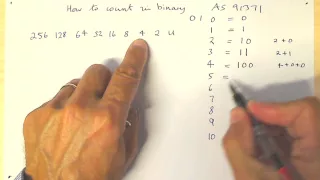 How to count in binary AS 91371
256 128 64 32 16 8 4 2 U
0 1
0 = 0
1 = 1
2 = 10 2+0
3 = 11 2+1
4 = 100 4+0+0
5 =
6
7
8
9
10